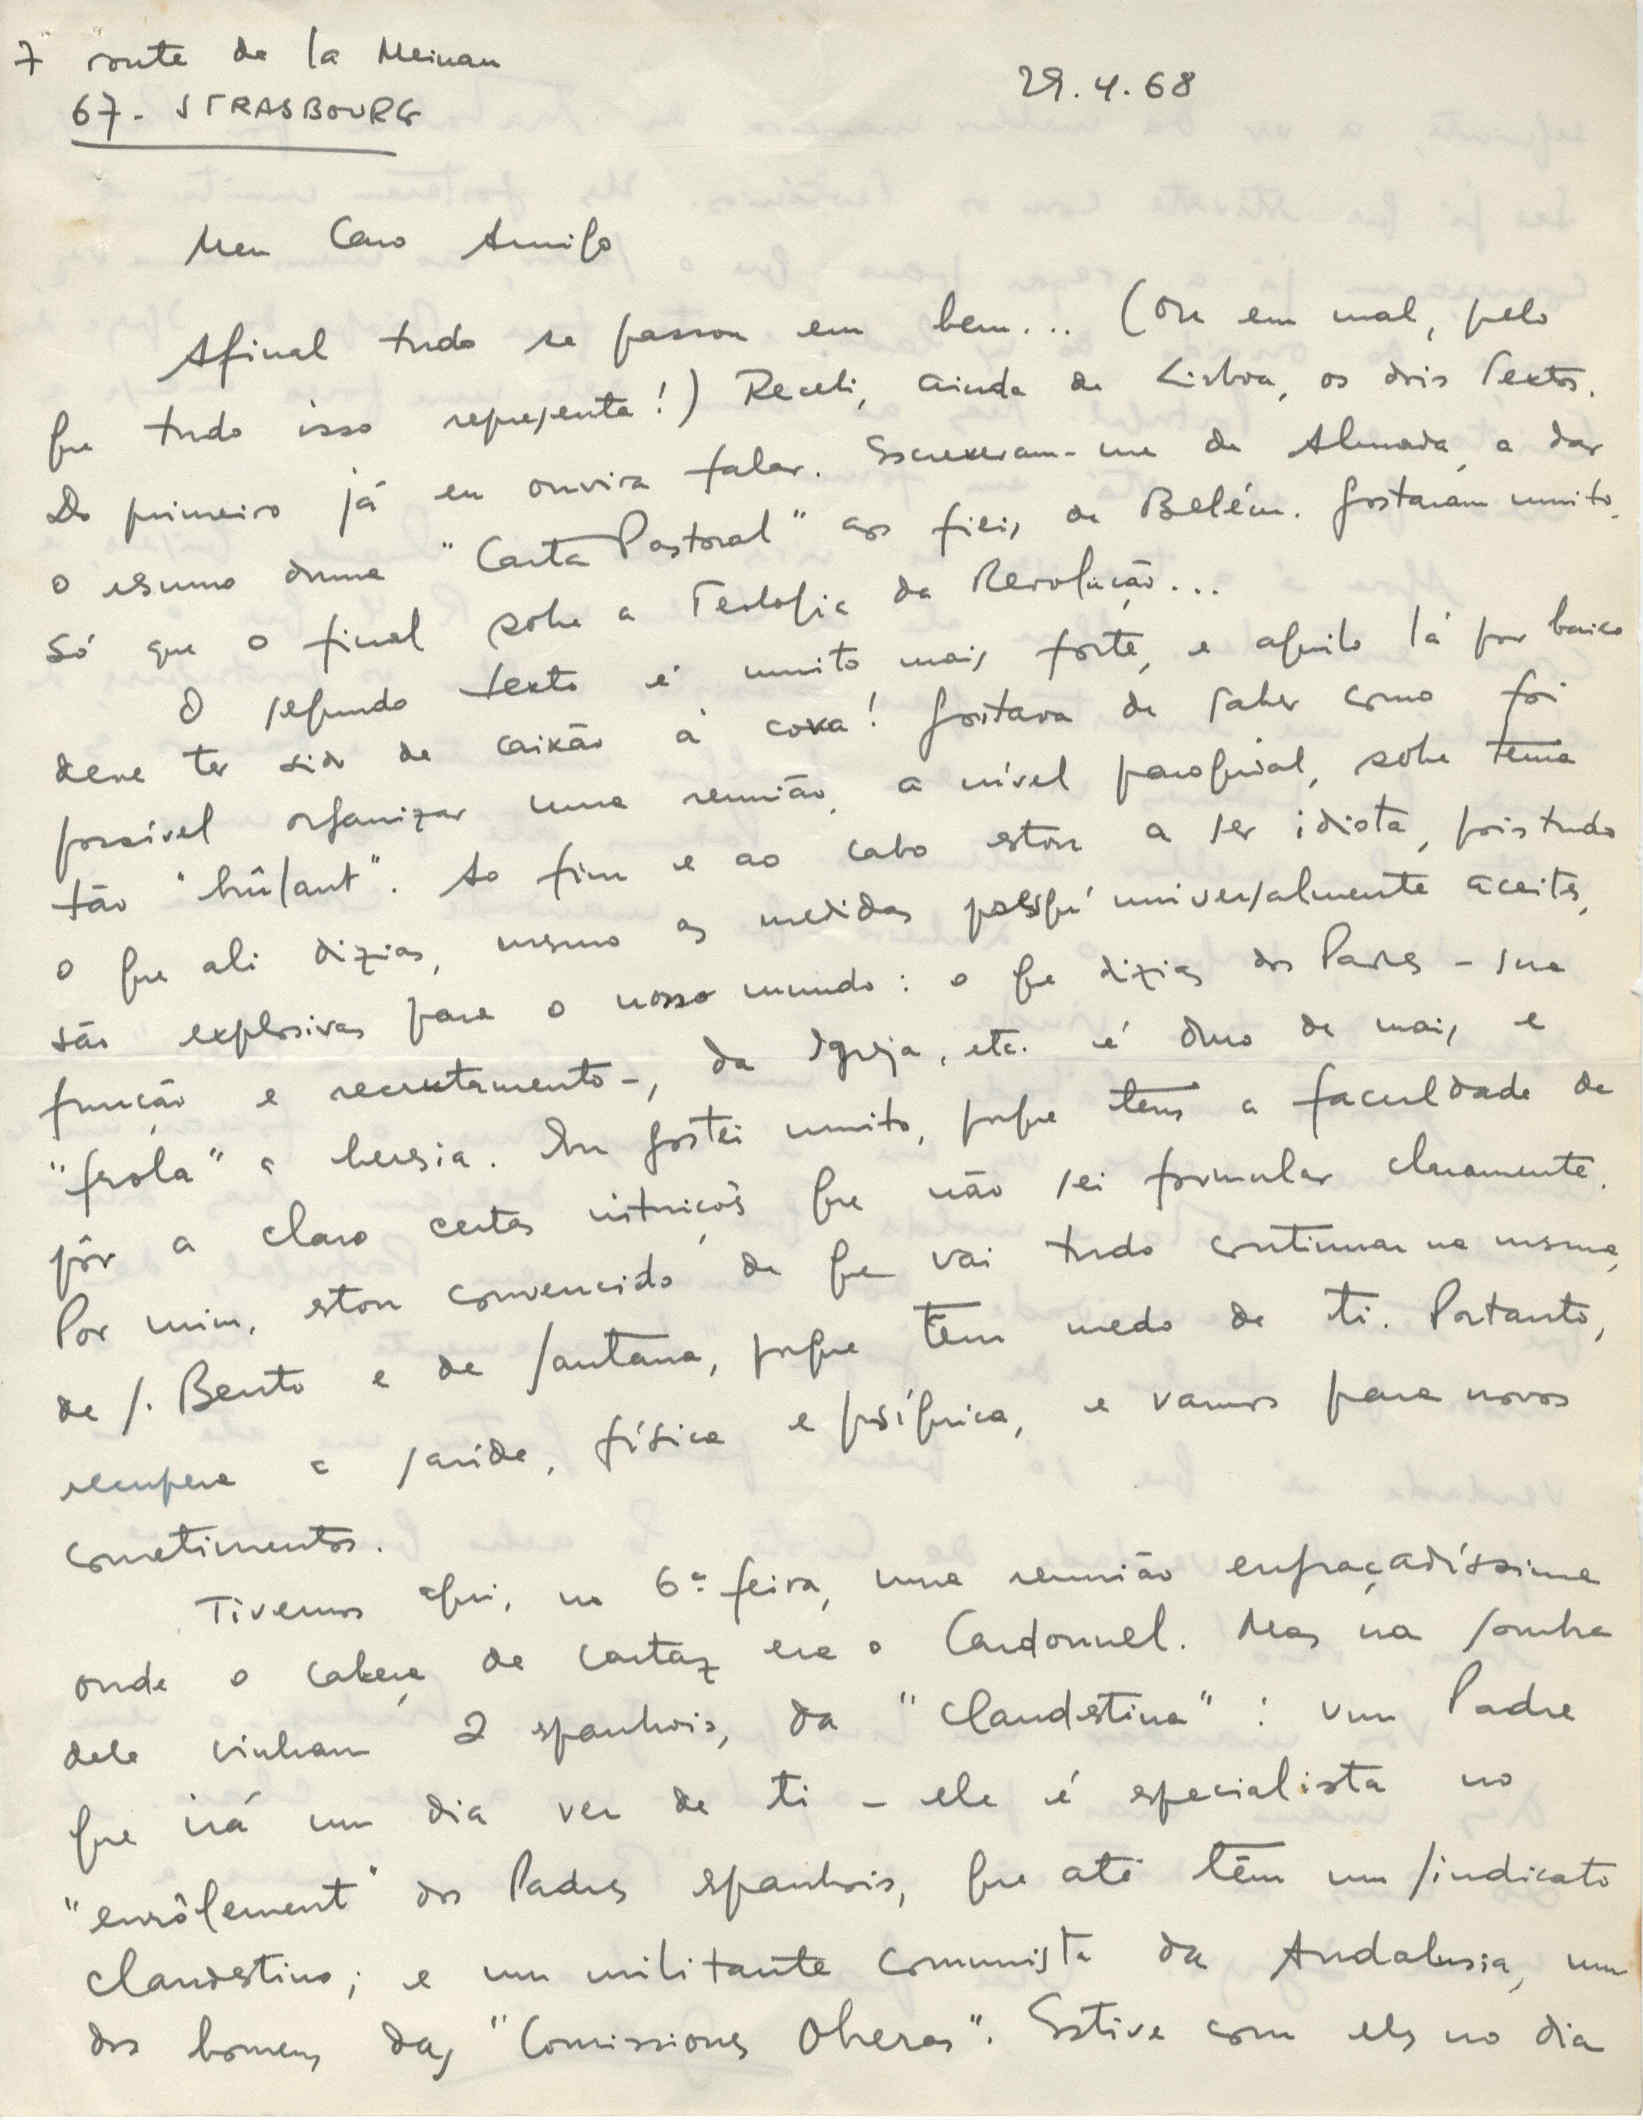 7 route de la Meinau
67 - STRASBOURG
29.4.68
Meu Caro Amigo
Afinal tudo se passou em bem... (Ou em mal, pelo
que tudo isso representa!) Recebi, ainda de Lisboa, os dois textos.
Do primeiro já eu ouvira falar. Escreveram-me de Almada, a dar
o resumo duma "Carta Pastoral" aos fiéis de Belém. Gostaram muito.
Só que o final sobre a Teologia da Revolução...
O segundo texto é muito mais forte, e aquilo lá por baixo
deve ter sido de caixão à cova! Gostava de saber como foi
possível organizar uma reunião, a nível paroquial, sobre tema
tão "brûlant". Ao fim e ao cabo estou a ser idiota, pois tudo
o que ali dizias, mesmo as medidas universalmente aceites,
são explosivas para o nosso mundo: o que dizias dos Padres - sua
função e recrutamento -, da Igreja, etc. é duro de mais, e
"frola" a heresia. Eu gostei muito, porque tens a faculdade de
pôr a claro certas intuições que não sei formular claramente.
Por mim, estou convencido de que vai tudo continuar na mesma,
de S. Bento e de Santana, porque têm medo de ti. Portanto,
recupera a saúde, física e psíquica, e vamos para novos
cometimentos.
Tivemos aqui, na 6ª feira, uma reunião engraçadíssima
onde o cabeça de cartaz era o Cardonnel. Mas na sombra
dele vinham 2 espanhois, da "clandestina": um Padre
que irá um dia ver de ti - ele é especialista no
"enrôlement" dos Padres espanhois, que até têm um sindicato
clandestino; e um militante comunista da Andalusia, um
dos homens das "Comissiones Obreras". Estive com eles no dia